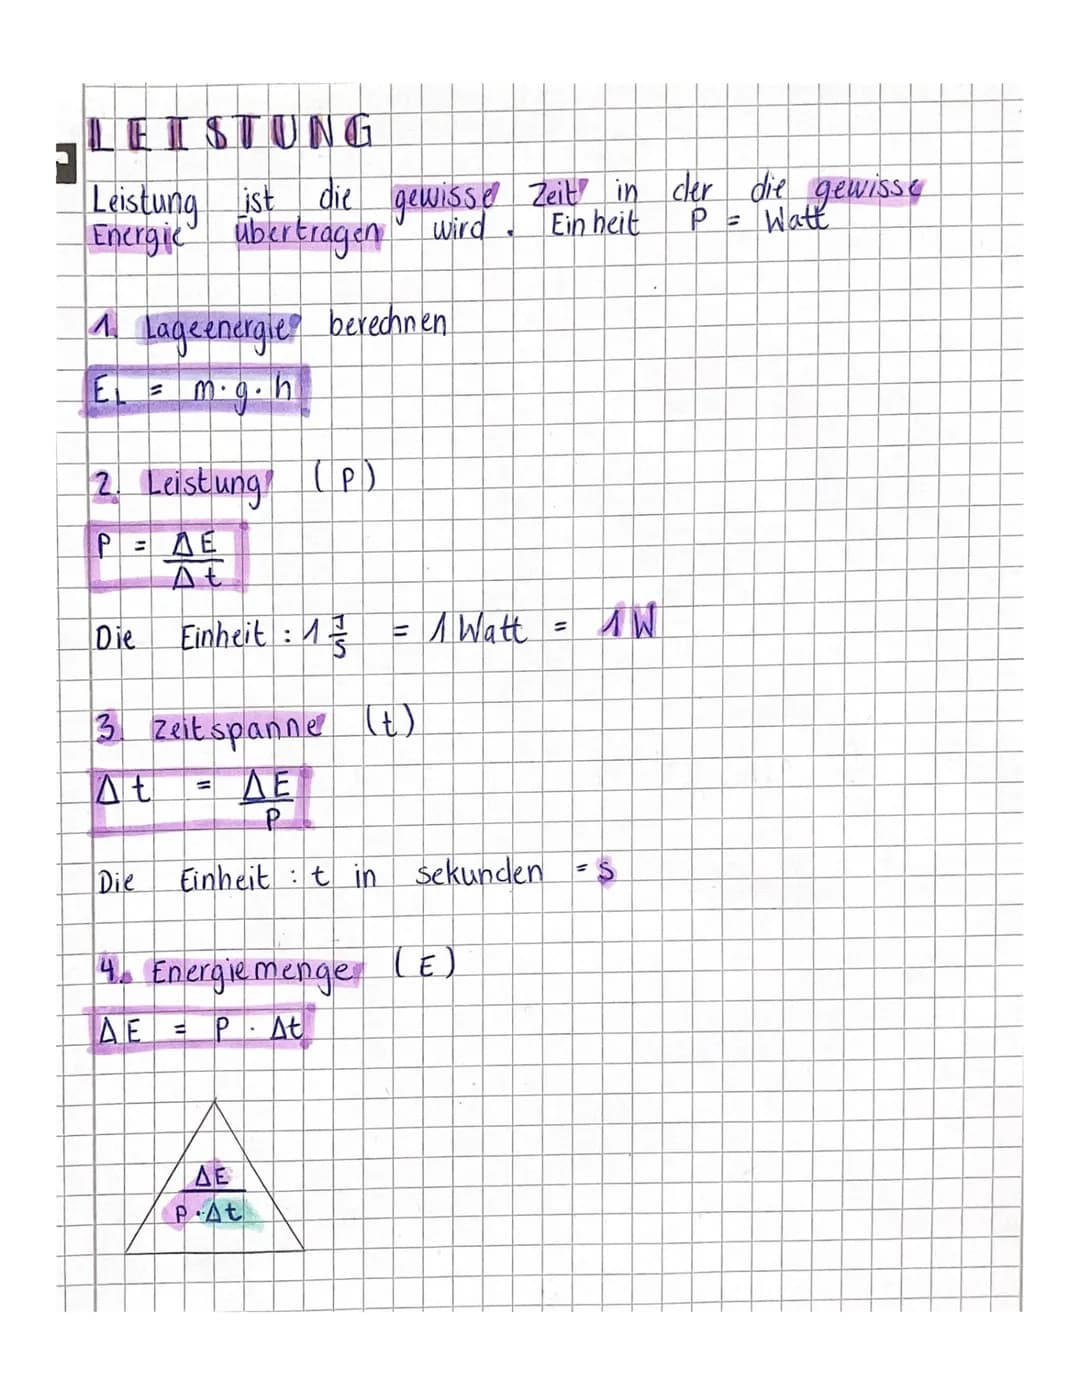 LEISTUNG
Leistung ist die gewisse Zeit in der die gewisse
Energie übertragen wird. Einheit P = Watt
1. Lageenergie berechnen
EL = m·g·h
2. Leistung (P)
P = ΔE
Δt
Die Einheit : 1 J/s = 1 Watt = 1W
3. Zeitspanne (t)
Δt = ΔE
P
Die Einheit : t in sekunden = s
4. Energiemenge (E)
ΔE = P · Δt
ΔE
P·Δt